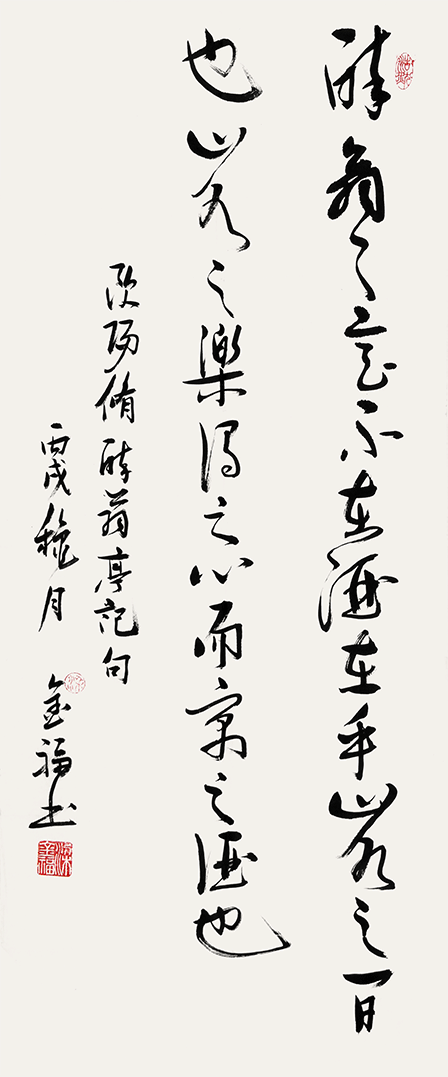 醉翁之意不在酒在乎山水之間
也山水之樂得之心而寓之酒也
欧陽脩醉翁亭記句
丙戌穐月 金福书